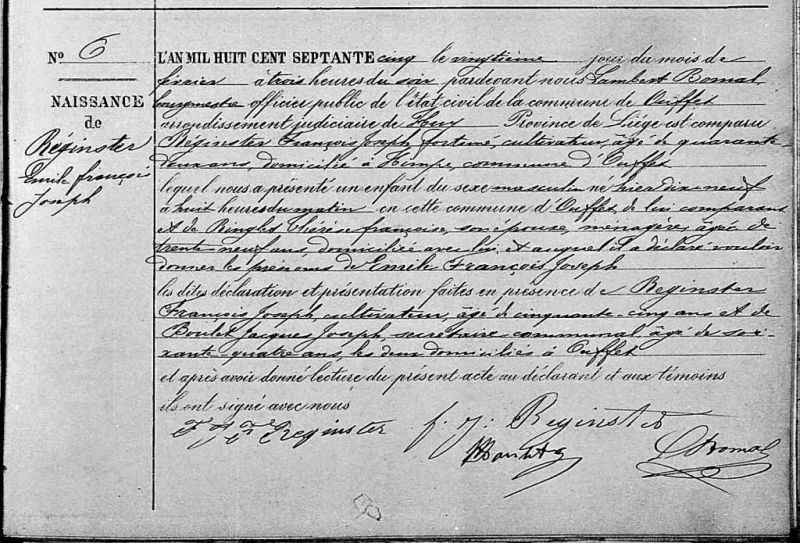 N° 6
NAISSANCE
de
Réginster
Emile françois
Joseph
L'AN MIL HUIT CENT SEPTANTE cinq le vingtième jour du mois de
février à trois heures du soir pardevant nous Lambert Bomal
bourgmestre officier public de l'état civil de la commune de Ouffet
arrondissement judiciaire de Huy Province de Liège est comparu
Réginster François Joseph fortuné, cultivateur, âgé de quarante-
deux ans, domicilié à Hempe, commune d'Ouffet
lequel nous a présenté un enfant du sexe masculin né hier dix-neuf
à huit heures du matin en cette commune d'Ouffet, de lui comparant
et de Ringlet Thérèse françoise, son épouse, ménagère, âgée de
trente-neuf ans, domiciliée avec lui, et auquel il a déclaré vouloir
donner les prénoms de Emile François Joseph
les dites déclaration et présentation faites en présence de Réginster
François Joseph, cultivateur, âgé de cinquante-cinq ans et de
Boulet Jacques Joseph, secrétaire communal âgé de soi-
xante-quatre ans, les deux domiciliés à Ouffet
et après avoir donné lecture du présent acte au déclarant et aux témoins
ils ont signé avec nous
F J F Reginster
f. j. Reginster
L Bomal